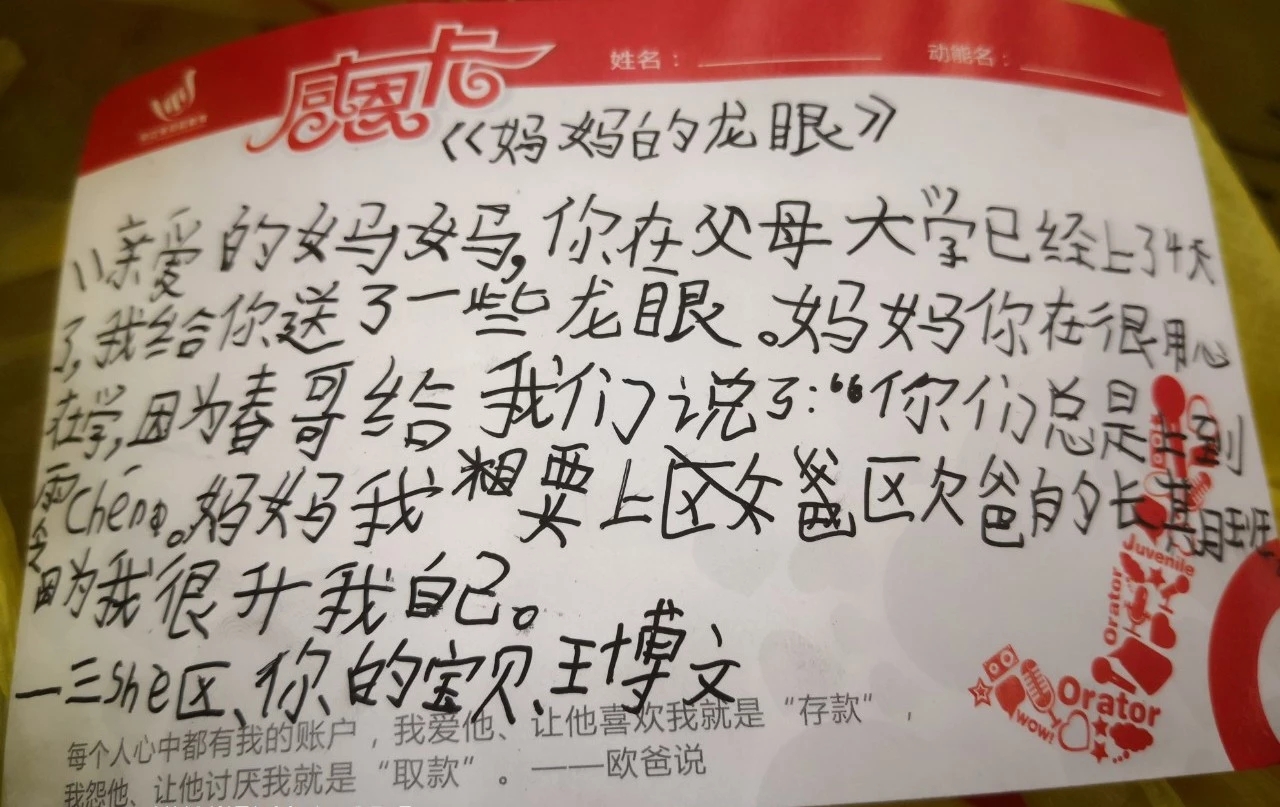 感恩卡
姓名：
动能名：
《妈妈的龙眼》
亲爱的妈妈,你在父母大学已经上了4天
了,我给你送了一些龙眼。妈妈你在很用心
在学,因为春哥给我们说了:“你们总是上到
零Chen。妈妈我想要上区欠爸的长期班,
因为我很升我自己。
一三She区、你的宝贝、王博文
每个人心中都有我的账户，我爱他、让他喜欢我就是“存款”，
我怨他、让他讨厌我就是“取款”。——欧爸说
Juvenile
Orator
Orator
WOW!